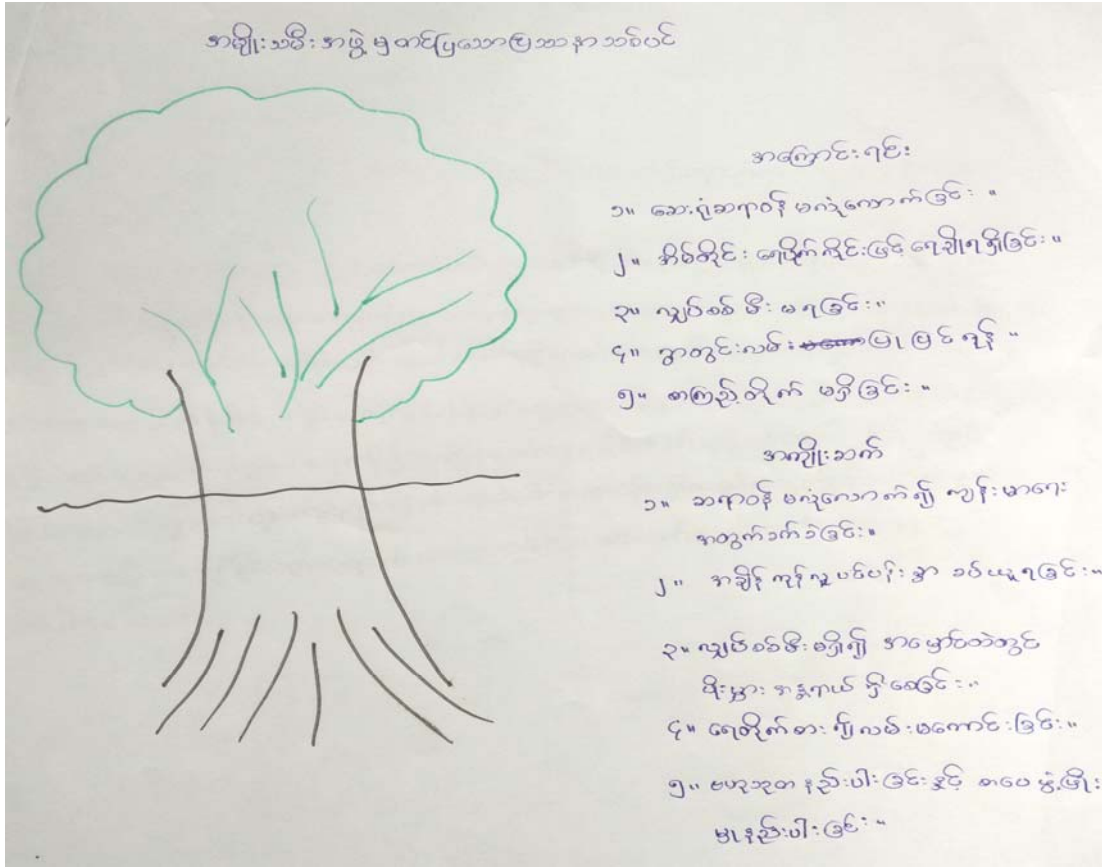 အမျိုးသမီးအဖွဲ့မှတင်ပြသောပြဿနာသစ်ပင်
အကြောင်းရင်း
၁။ ဆေးရုံဆရာဝန် မလုံလောက်ခြင်း။
၂။ အိမ်တိုင်း ရေပိုက်လိုင်းဖြင့် ရေချိုရရှိခြင်း။
၃။ လျှပ်စစ် မီး မရခြင်း။
၄။ ရွာတွင်းလမ်း ပြုပြင်ရန်။
၅။ စာကြည့်တိုက် မရှိခြင်း။
အကျိုးဆက်
၁။ ဆရာဝန် မလုံလောက်၍ ကျန်းမာရေး
အတွက်ခက်ခဲခြင်း။
၂။ အချိန်ကုန်လူပင်ပန်းစွာ ခပ်ယူရခြင်း။
၃။ လျှပ်စစ်မီးမရှိ၍ အမှောင်ထဲတွင်
ပိုးမွှား အန္တရာယ် ရှိစေခြင်း။
၄။ ရေတိုက်စား၍လမ်းမကောင်းခြင်း။
၅။ ဗဟုသုတ နည်းပါးခြင်းနှင့် စာပေဖွံ့ဖြိုး
မှုနည်းပါးခြင်း။